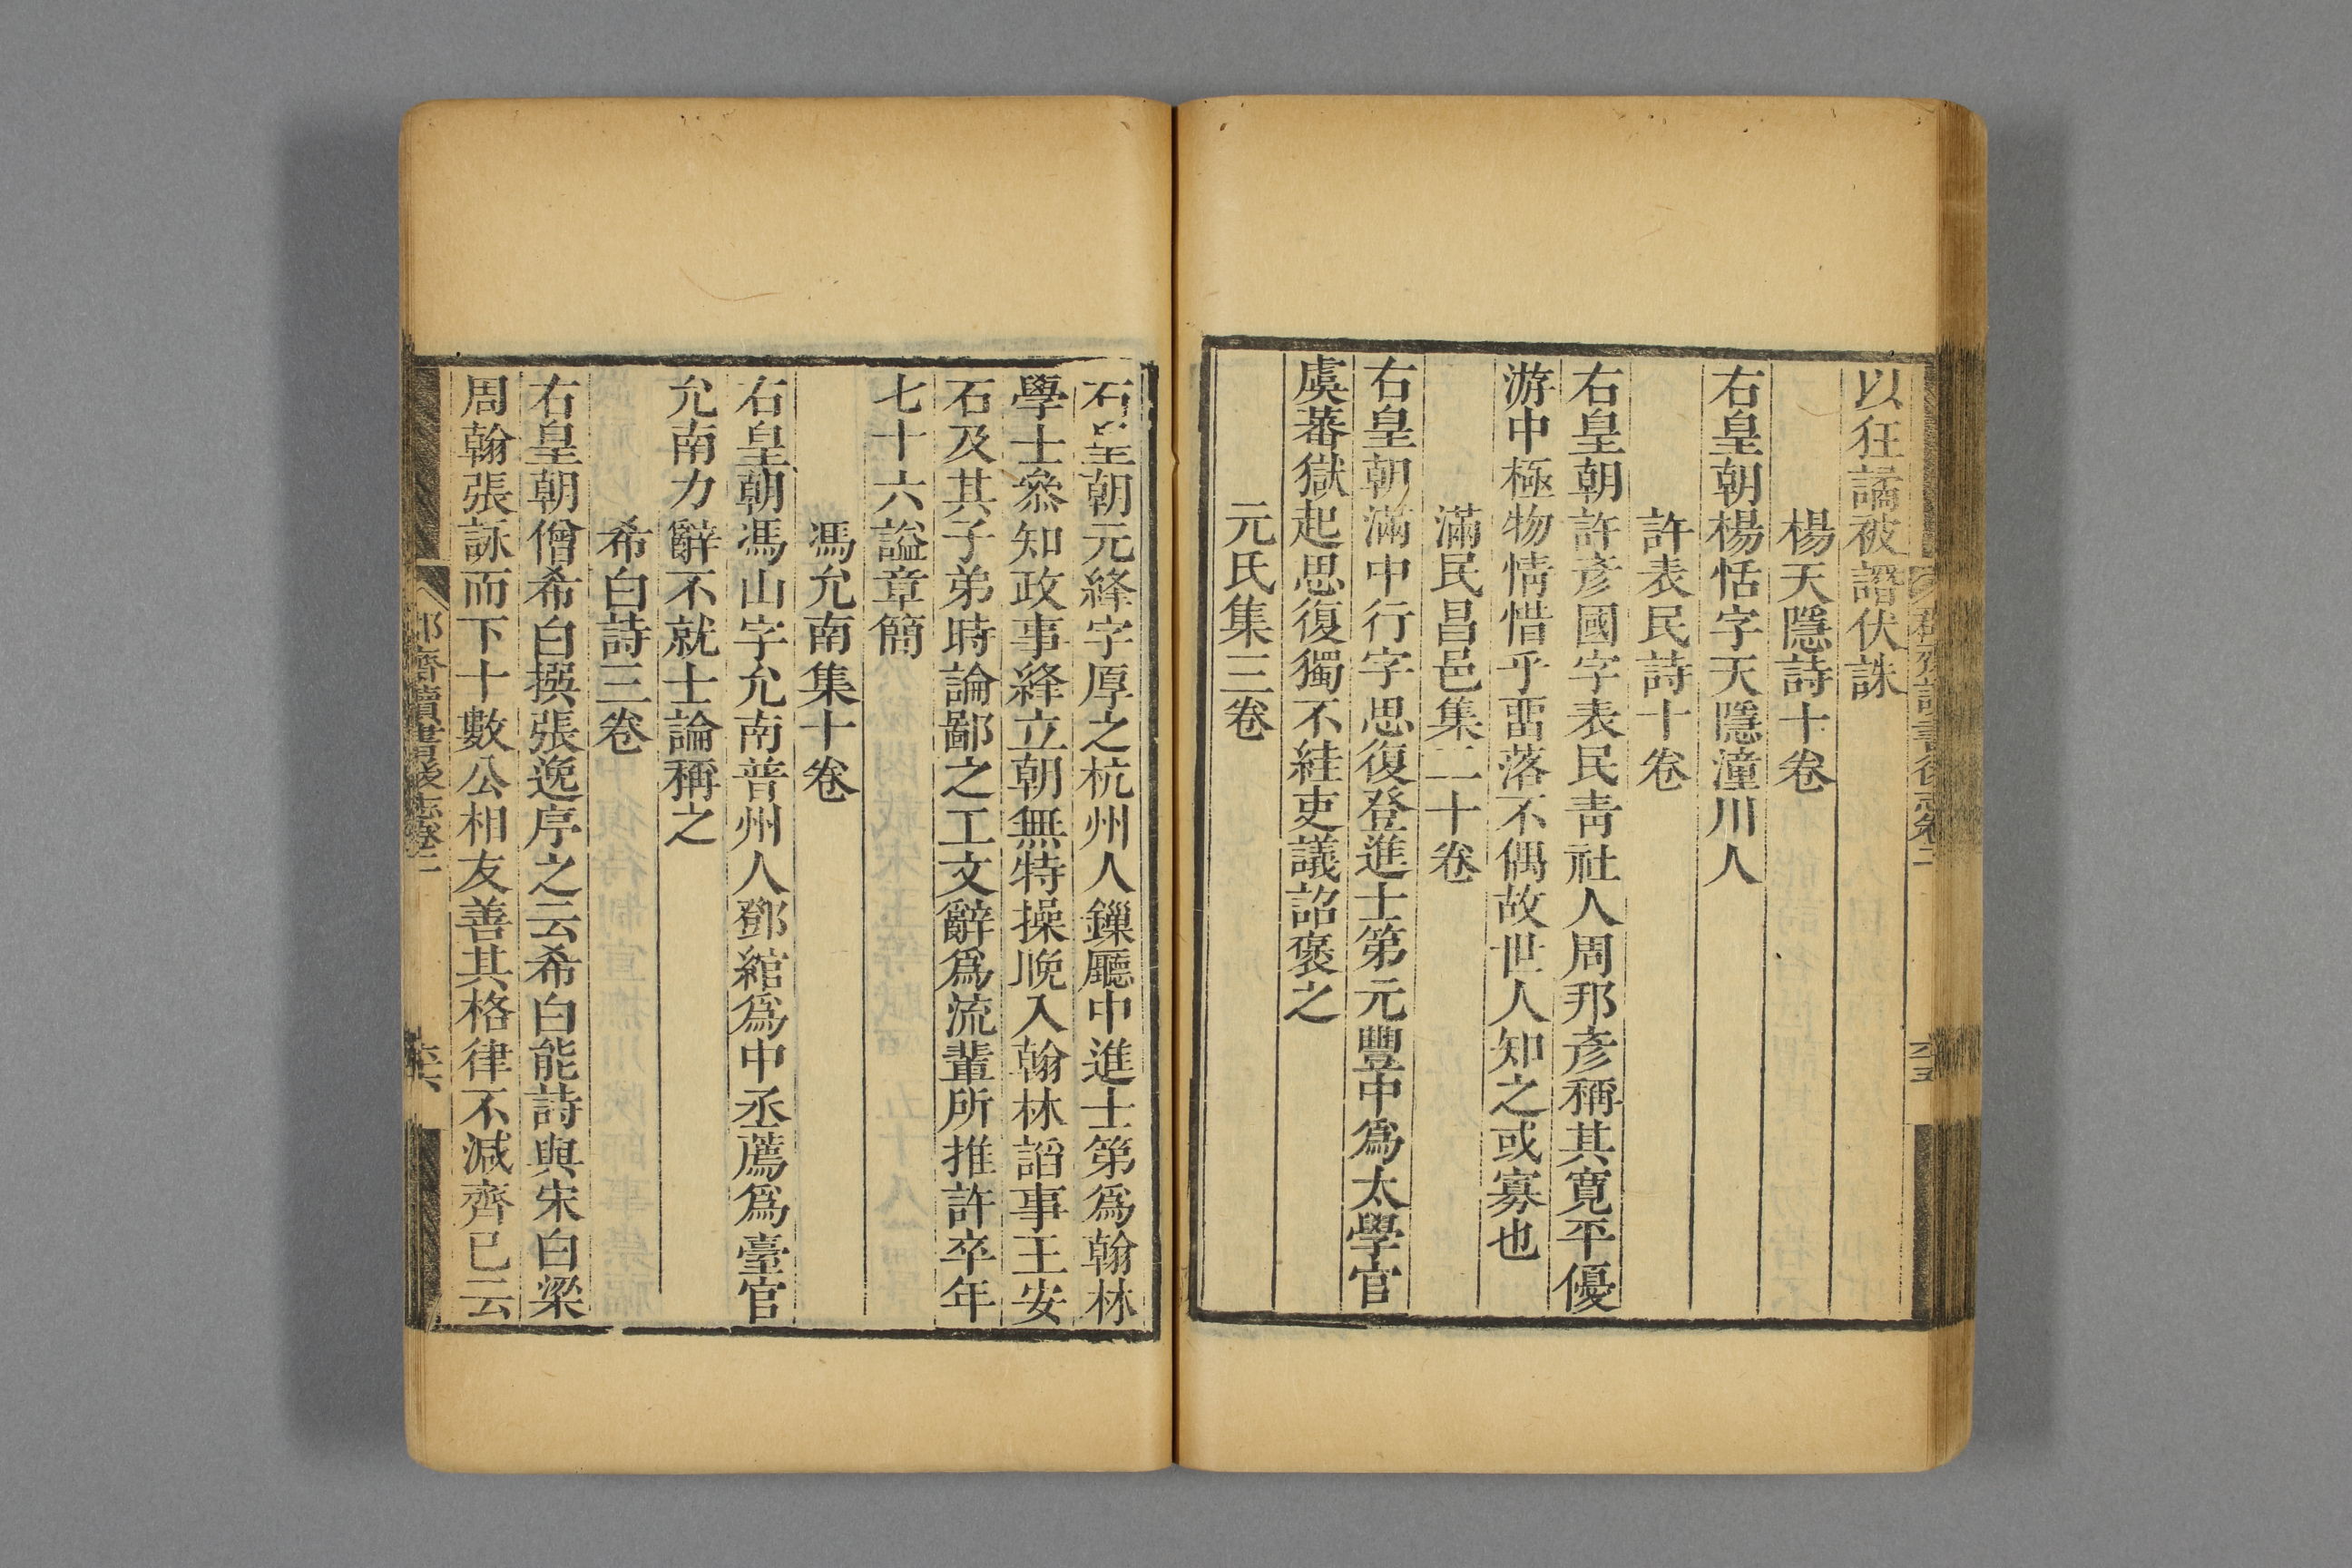 以狂譎被譖伏誅
楊天隱詩十卷
右皇朝楊恬字天隱潼川人
許表民詩十卷
右皇朝許彥國字表民靑社人周邦彥稱其寬平優
游中極物情惜乎畱落不偶故世人知之或寡也
滿民昌邑集二十卷
右皇朝滿中行字思復登進士第元豐中爲太學官
虞蕃獄起思復獨不絓吏議詔褒之
元氏集三卷
右皇朝元絳字厚之杭州人鏁廳中進士第爲翰林
學士叅知政事絳立朝無特操晚入翰林謟事王安
石及其子弟時論鄙之工文辭爲流輩所推許卒年
七十六謚章簡
馮允南集十卷
右皇朝馮山字允南普州人鄧綰爲中丞薦爲臺官
允南力辭不就士論稱之
希白詩三卷
右皇朝僧希白撰張逸序之云希白能詩與宋白梁
周翰張詠而下十數公相友善其格律不減齊己云
郡齋讀書後志卷二
六六